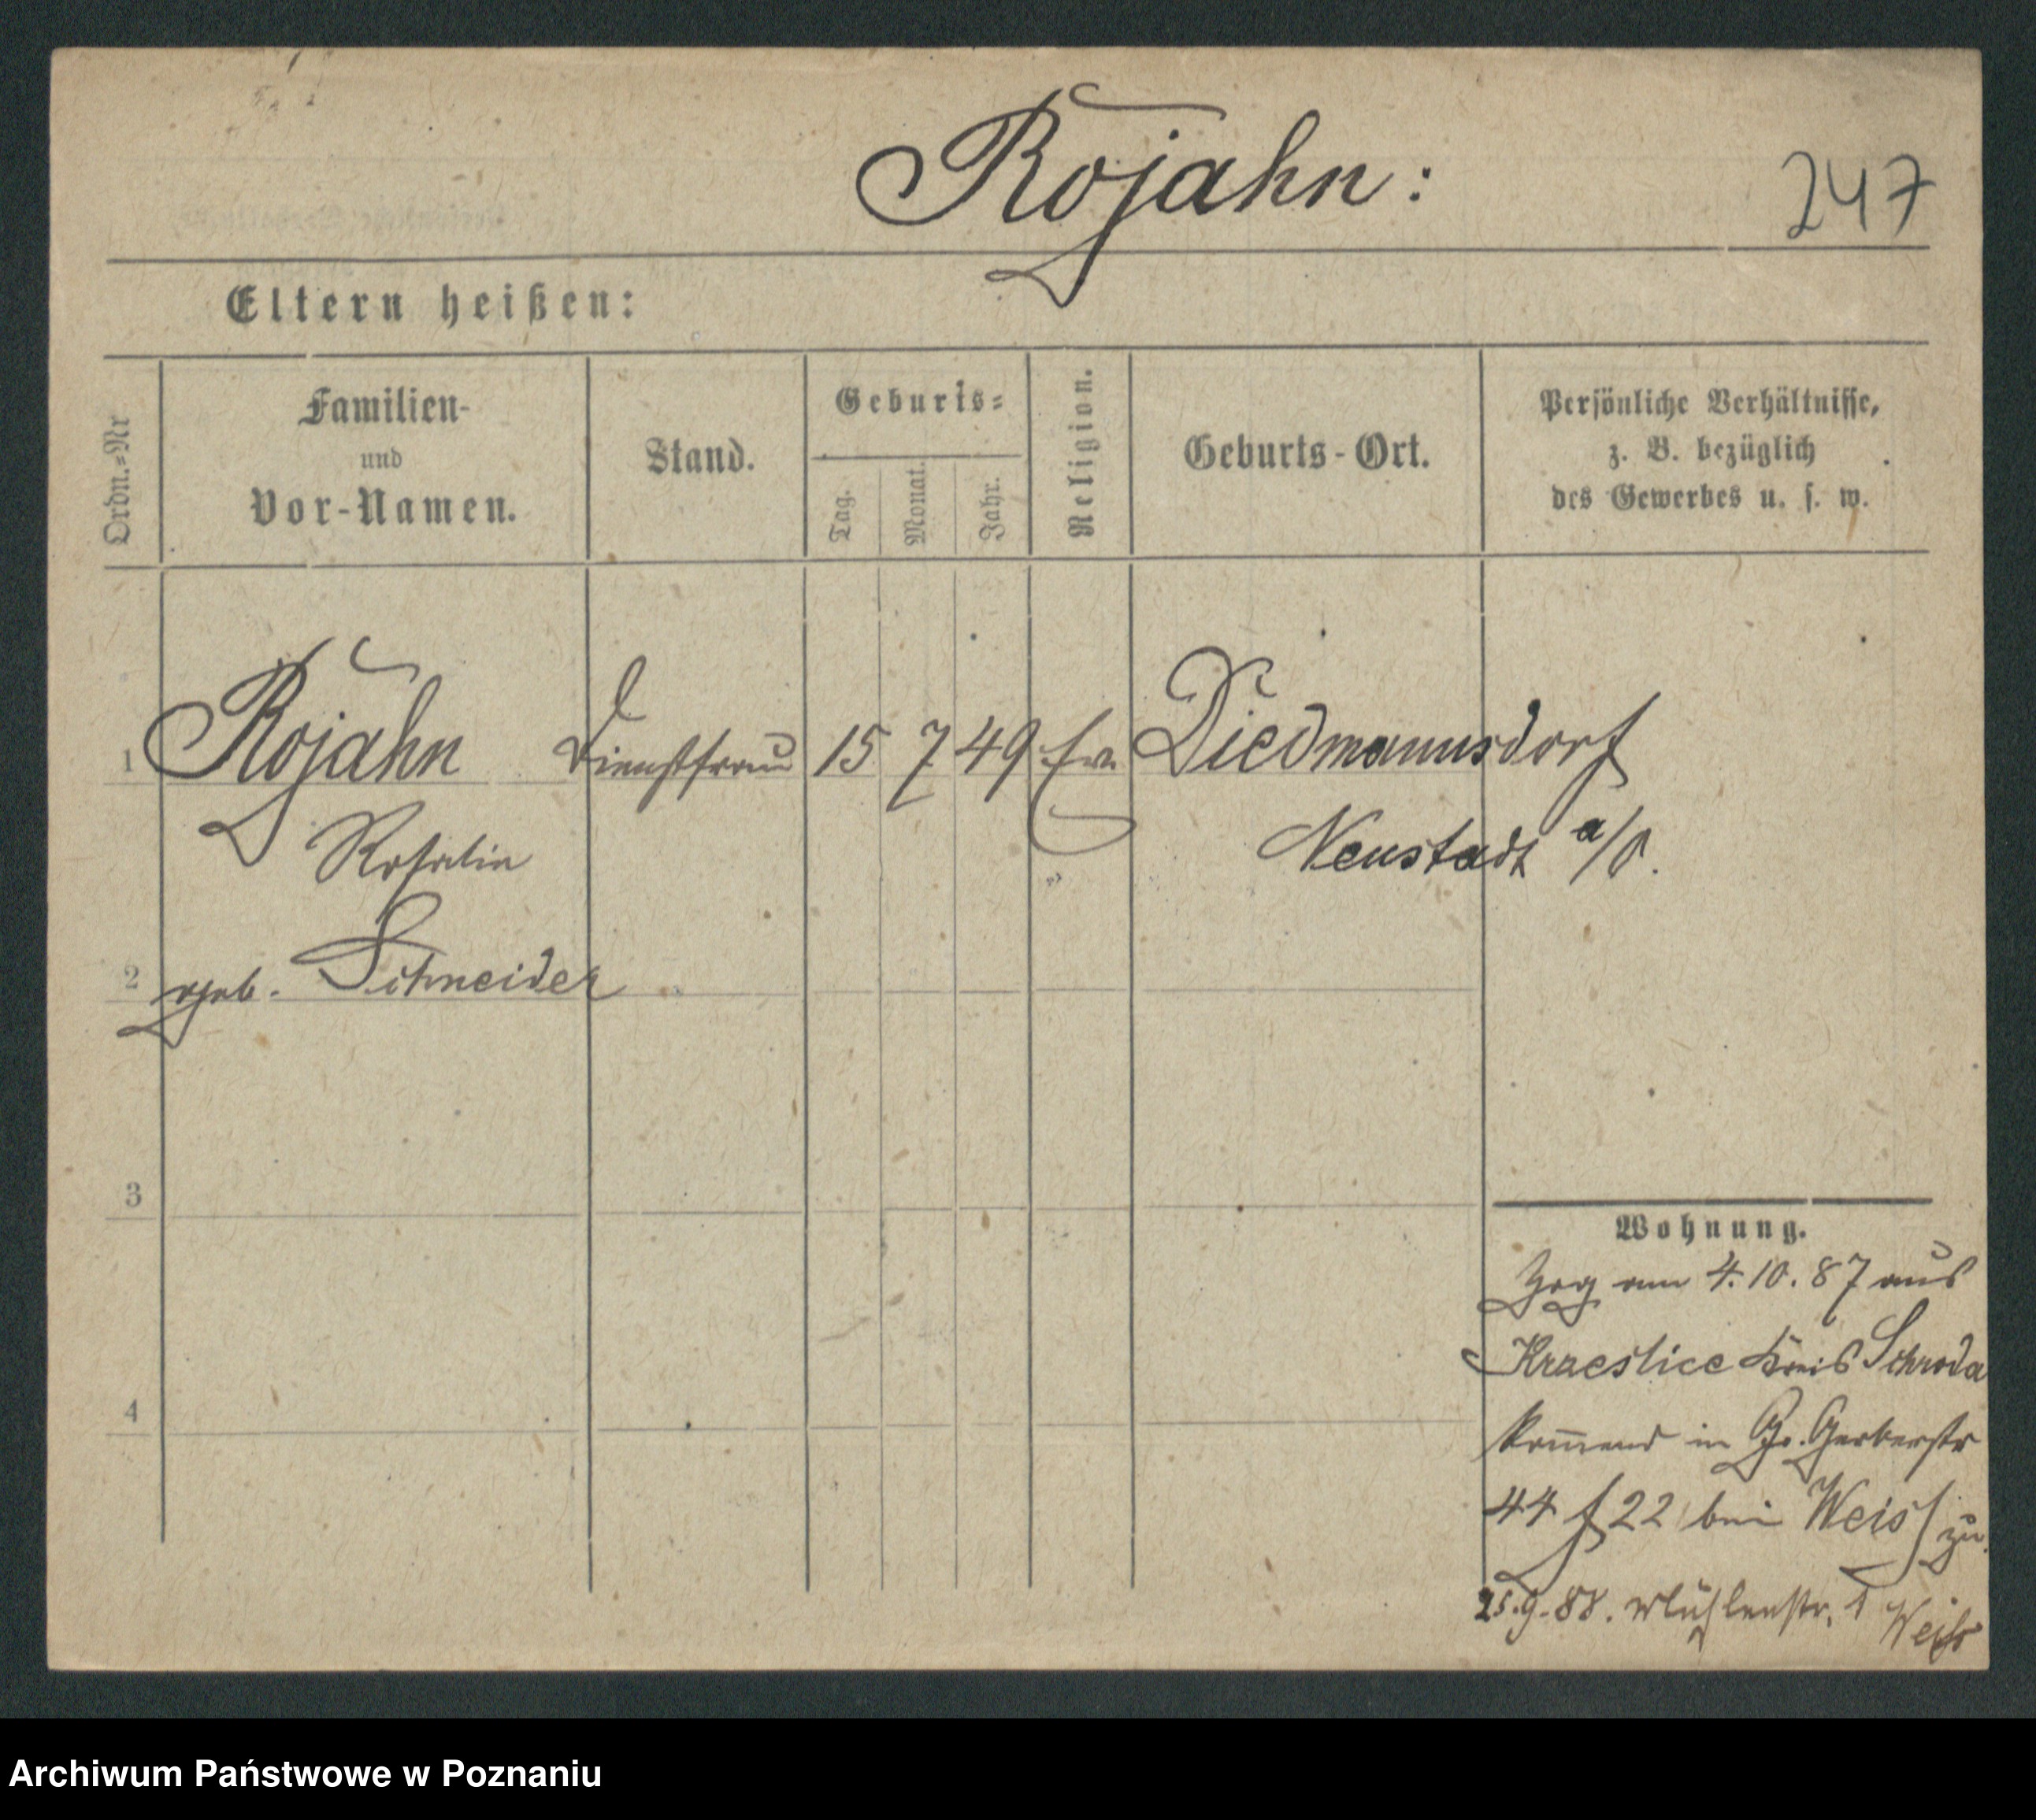 Rojahn:
247
Eltern heißen:
Ordn.=Nr
Familien-
und
Vor-Namen.
Stand.
Geburts=
Tag.
Monat.
Jahr.
Religion.
Geburts-Ort.
Persönliche Verhältnisse,
z. B. bezüglich
des Gewerbes u. s. w.
1 Rojahn Dienstfrau 15 7 49 Ev. Diedmannsdorf
Rosalie Neustadt a/O.
2 geb. Schneider
3
4
Wohnung.
Zog am 4.10.87 aus
Kraeslice Kreis Schroda
kommend in Gr. Gerberstr
44 f 22 bei Weiss zu.
25.9.88. Mühlenstr. 1 Weiss
Archiwum Państwowe w Poznaniu